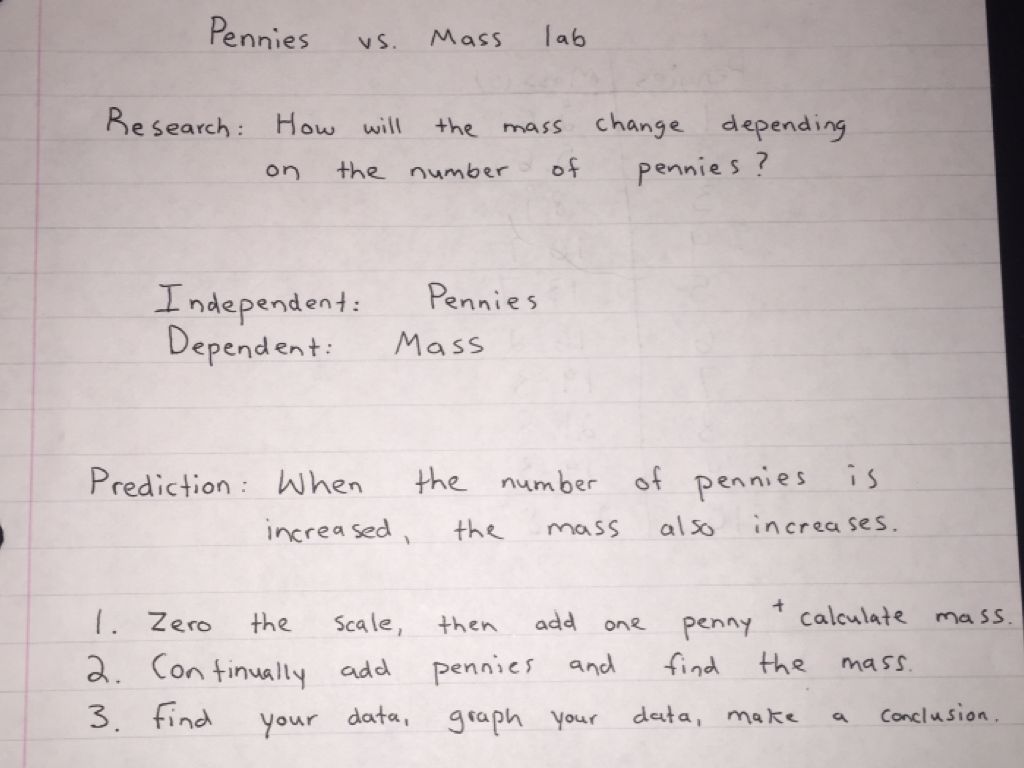 Pennies vs. Mass lab
Research: How will the mass change depending
on the number of pennies?
Independent: Pennies
Dependent: Mass
Prediction: When the number of pennies is
increased, the mass also increases.
1. Zero the scale, then add one penny + calculate mass.
2. Continually add pennies and find the mass.
3. Find your data, graph your data, make a conclusion.